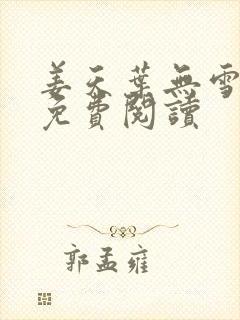 姜天葉無雪
免費閱讀
郭孟雍